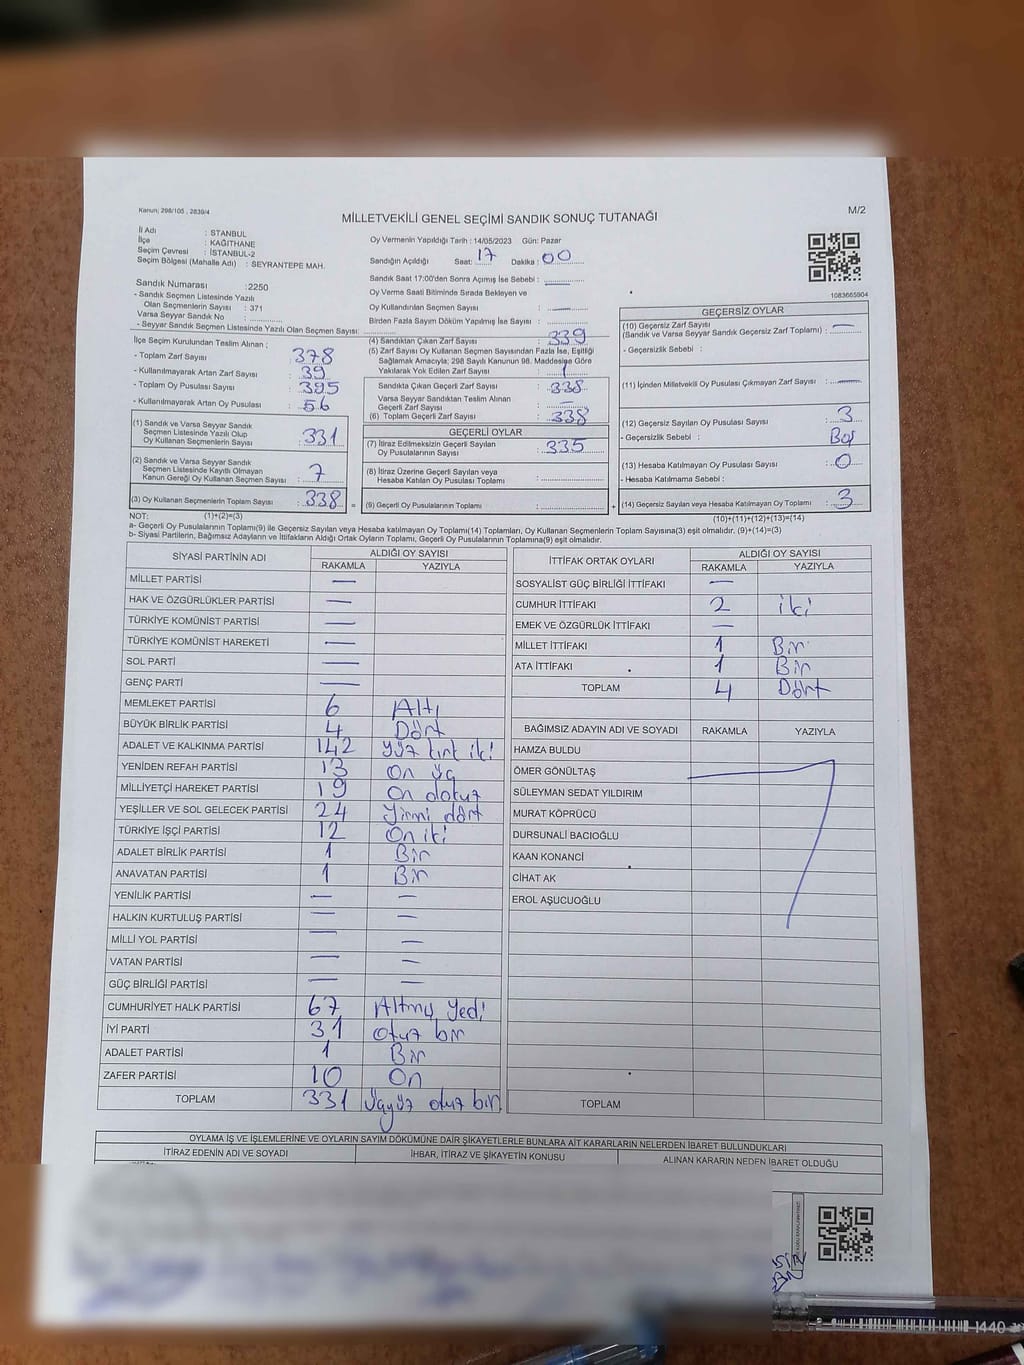 Kanun; 298/105 , 2839/4
MİLLETVEKİLİ GENEL SEÇİMİ SANDIK SONUÇ TUTANAĞI
M/2
İl Adı : İSTANBUL
İlçe : KAĞITHANE
Seçim Çevresi : İSTANBUL-2
Seçim Bölgesi (Mahalle Adı) : SEYRANTEPE MAH.
Sandık Numarası :2250
- Sandık Seçmen Listesinde Yazılı
Olan Seçmenlerin Sayısı : 371
Varsa Seyyar Sandık No :
- Seyyar Sandık Seçmen Listesinde Yazılı Olan Seçmen Sayısı:
İlçe Seçim Kurulundan Teslim Alınan ;
- Toplam Zarf Sayısı : 378
- Kullanılmayarak Artan Zarf Sayısı : 39
- Toplam Oy Pusulası Sayısı : 395
- Kullanılmayarak Artan Oy Pusulası : 56
(1) Sandık ve Varsa Seyyar Sandık
Seçmen Listesinde Yazılı Olup
Oy Kullanan Seçmenlerin Sayısı : 331
(2) Sandık ve Varsa Seyyar Sandık
Seçmen Listesinde Kayıtlı Olmayan
Kanun Gereği Oy Kullanan Seçmen Sayısı : 7
(3) Oy Kullanan Seçmenlerin Toplam Sayısı : 338 =
Oy Vermenin Yapıldığı Tarih : 14/05/2023 Gün: Pazar
Sandığın Açıldığı Saat: 17 Dakika : 00
Sandık Saat 17:00'den Sonra Açılmış İse Sebebi :
Oy Verme Saati Bitiminde Sırada Bekleyen ve
Oy Kullandırılan Seçmen Sayısı : —
Birden Fazla Sayım Döküm Yapılmış İse Sayısı :
(4) Sandıktan Çıkan Zarf Sayısı : 339
(5) Zarf Sayısı Oy Kullanan Seçmen Sayısından Fazla İse, Eşitliği
Sağlamak Amacıyla; 298 Sayılı Kanunun 98. Maddesine Göre
Yakılarak Yok Edilen Zarf Sayısı : 1
Sandıkta Çıkan Geçerli Zarf Sayısı : 338
Varsa Seyyar Sandıktan Teslim Alınan
Geçerli Zarf Sayısı : —
(6) Toplam Geçerli Zarf Sayısı : 338
GEÇERLİ OYLAR
(7) İtiraz Edilmeksizin Geçerli Sayılan
Oy Pusulalarının Sayısı : 335
(8) İtiraz Üzerine Geçerli Sayılan veya
Hesaba Katılan Oy Pusulası Toplamı :
(9) Geçerli Oy Pusulalarının Toplamı : +
1083665904
GEÇERSİZ OYLAR
(10) Geçersiz Zarf Sayısı
(Sandık ve Varsa Seyyar Sandık Geçersiz Zarf Toplamı) : —
- Geçersizlik Sebebi :
(11) İçinden Milletvekili Oy Pusulası Çıkmayan Zarf Sayısı : —
(12) Geçersiz Sayılan Oy Pusulası Sayısı : 3
- Geçersizlik Sebebi : Boş
(13) Hesaba Katılmayan Oy Pusulası Sayısı : 0
- Hesaba Katılmama Sebebi :
(14) Geçersiz Sayılan veya Hesaba Katılmayan Oy Toplamı : 3
NOT: (1)+(2)=(3) (10)+(11)+(12)+(13)=(14)
a- Geçerli Oy Pusulalarının Toplamı(9) ile Geçersiz Sayılan veya Hesaba katılmayan Oy Toplamı(14) Toplamları, Oy Kullanan Seçmenlerin Toplam Sayısına(3) eşit olmalıdır. (9)+(14)=(3)
b- Siyasi Partilerin, Bağımsız Adayların ve İttifakların Aldığı Ortak Oyların Toplamı, Geçerli Oy Pusulalarının Toplamına(9) eşit olmalıdır.
SİYASİ PARTİNİN ADI ALDIĞI OY SAYISI
RAKAMLA YAZIYLA
MİLLET PARTİSİ —
HAK VE ÖZGÜRLÜKLER PARTİSİ —
TÜRKİYE KOMÜNİST PARTİSİ —
TÜRKİYE KOMÜNİST HAREKETİ —
SOL PARTİ —
GENÇ PARTİ —
MEMLEKET PARTİSİ 6 Altı
BÜYÜK BİRLİK PARTİSİ 4 Dört
ADALET VE KALKINMA PARTİSİ 142 yüz kırk iki
YENİDEN REFAH PARTİSİ 13 On üç
MİLLİYETÇİ HAREKET PARTİSİ 19 On dokuz
YEŞİLLER VE SOL GELECEK PARTİSİ 24 Yirmi dört
TÜRKİYE İŞÇİ PARTİSİ 12 On iki
ADALET BİRLİK PARTİSİ 1 Bir
ANAVATAN PARTİSİ 1 Bir
YENİLİK PARTİSİ — —
HALKIN KURTULUŞ PARTİSİ — —
MİLLİ YOL PARTİSİ — —
VATAN PARTİSİ — —
GÜÇ BİRLİĞİ PARTİSİ — —
CUMHURİYET HALK PARTİSİ 67 Altmış Yedi
İYİ PARTİ 31 Otuz bir
ADALET PARTİSİ 1 Bir
ZAFER PARTİSİ 10 On
TOPLAM 331 Üçyüz otuz bir
İTTİFAK ORTAK OYLARI ALDIĞI OY SAYISI
RAKAMLA YAZIYLA
SOSYALİST GÜÇ BİRLİĞİ İTTİFAKI —
CUMHUR İTTİFAKI 2 iki
EMEK VE ÖZGÜRLÜK İTTİFAKI —
MİLLET İTTİFAKI 1 Bir
ATA İTTİFAKI 1 Bir
TOPLAM 4 Dört
BAĞIMSIZ ADAYIN ADI VE SOYADI RAKAMLA YAZIYLA
HAMZA BULDU
ÖMER GÖNÜLTAŞ
SÜLEYMAN SEDAT YILDIRIM
MURAT KÖPRÜCÜ
DURSUNALİ BACIOĞLU
KAAN KONANCİ
CİHAT AK
EROL AŞUCUOĞLU
TOPLAM
OYLAMA İŞ VE İŞLEMLERİNE VE OYLARIN SAYIM DÖKÜMÜNE DAİR ŞİKAYETLERLE BUNLARA AİT KARARLARIN NELERDEN İBARET BULUNDUKLARI
İTİRAZ EDENİN ADI VE SOYADI İHBAR, İTİRAZ VE ŞİKAYETİN KONUSU ALINAN KARARIN NEDEN İBARET OLDUĞU
1440